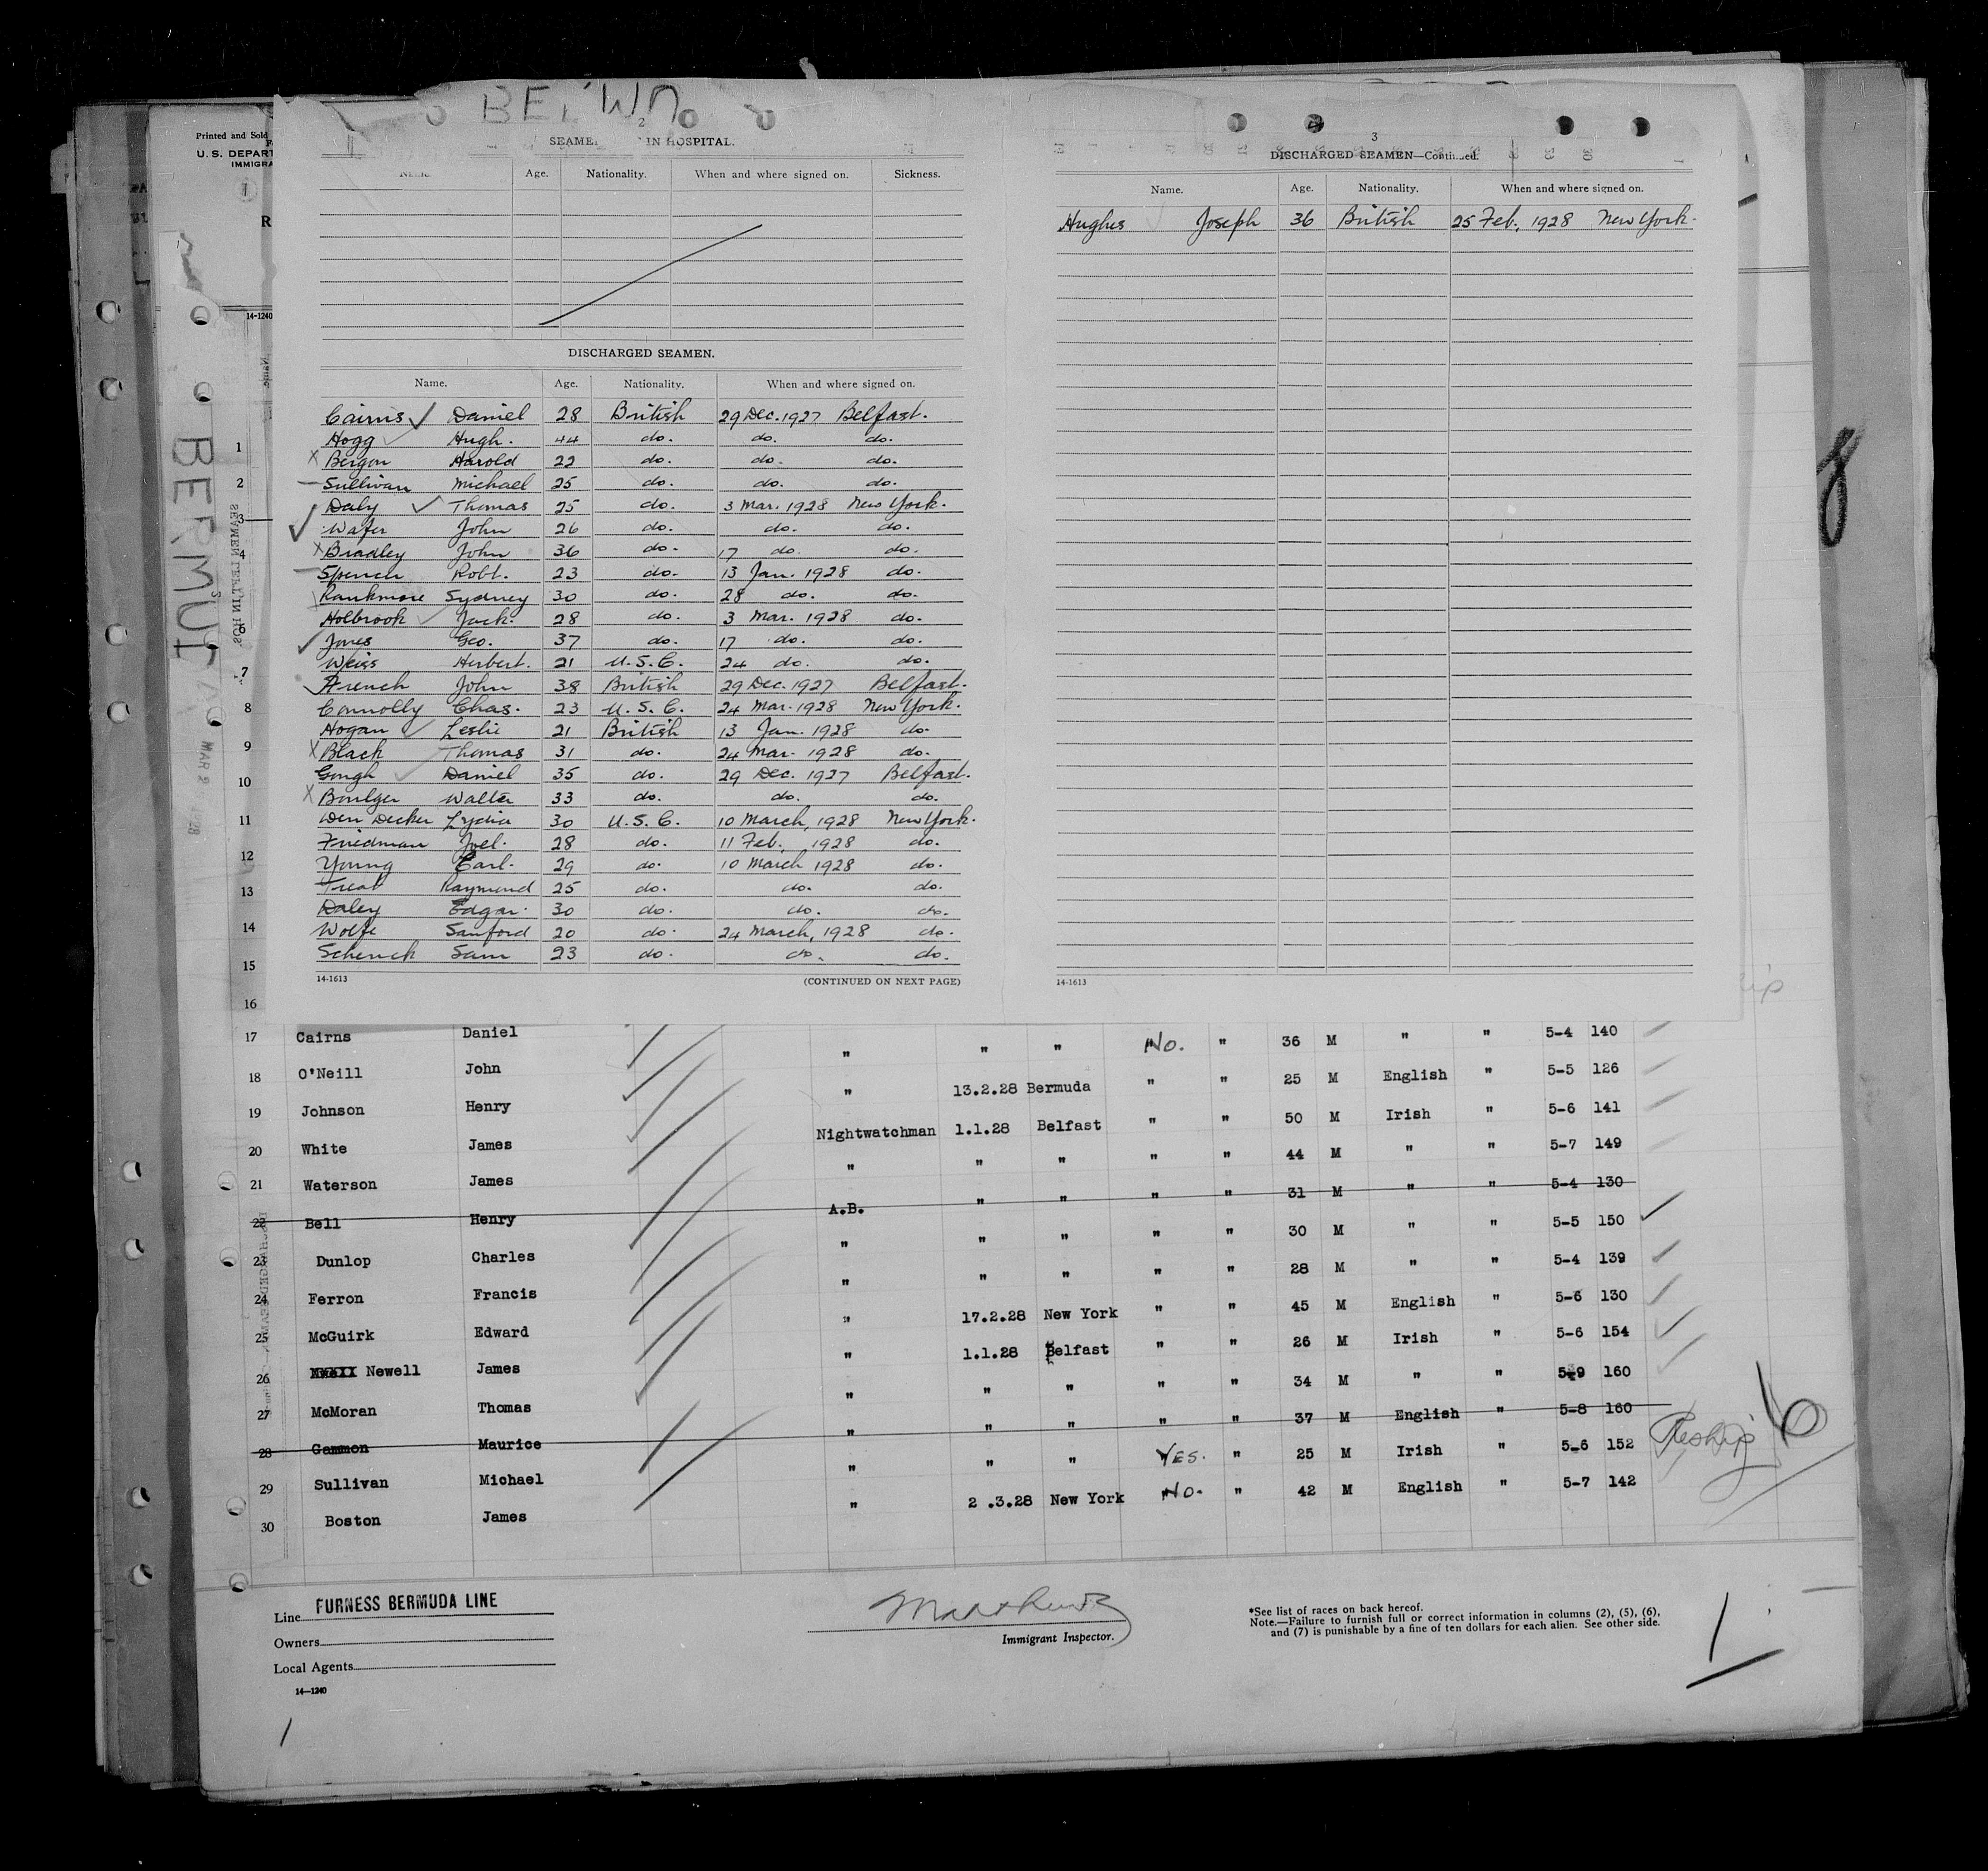 Printed and Sold
U. S. DEPART
IMMIGRA
R
14-1240
BERMU
MAR 2 1928
2
IN HOSPITAL.
Age. Nationality. When and where signed on. Sickness.
DISCHARGED SEAMEN.
Name. Age. Nationality. When and where signed on.
Cairns Daniel 28 British 29 Dec. 1927 Belfast.
Hogg Hugh. 44 do. do. do.
X Bergen Harold 22 do. do. do.
Sullivan Michael 25 do. do. do.
Daly Thomas 25 do. 3 Mar. 1928 New York.
Wafer John 26 do. do. do.
X Bradley John 36 do. 17 do. do.
Spence Robt. 23 do. 13 Jan. 1928 do.
Rankmore Sydney 30 do. 28 do. do.
Holbrook Jack. 28 do. 3 Mar. 1928 do.
Jones Geo. 37 do. 17 do. do.
Weiss Herbert. 21 U.S.C. 24 do. do.
French John 38 British 29 Dec. 1927 Belfast.
Connolly Chas. 23 U.S.C. 24 Mar. 1928 New York.
Hogan Leslie 21 British 13 Jan. 1928 do.
X Black Thomas 31 do. 24 Mar. 1928 do.
Gough Daniel 35 do. 29 Dec. 1927 Belfast.
X Boulger Walter 33 do. do. do.
Den Decker Lydia 30 U.S.C. 10 March, 1928 New York.
Friedman Joel. 28 do. 11 Feb. 1928 do.
Young Earl. 29 do. 10 March 1928 do.
Treat Raymond 25 do. do. do.
Daley Edgar. 30 do. do. do.
Wolfe Sanford 20 do. 24 March, 1928 do.
Schenck Sam 23 do. do. do.
14-1613 (CONTINUED ON NEXT PAGE)
3
DISCHARGED SEAMEN—Continued.
Name. Age. Nationality. When and where signed on.
Hughes Joseph 36 British 25 Feb., 1928 New York.
14-1613
8
1
2
3
4
6
7
8
9
10
11
12
13
14
15
16
17 Cairns Daniel " " " No. " 36 M " " 5-4 140
18 O'Neill John " 13.2.28 Bermuda " " 25 M English " 5-5 126
19 Johnson Henry Nightwatchman 1.1.28 Belfast " " 50 M Irish " 5-6 141
20 White James " " " " " 44 M " " 5-7 149
21 Waterson James A.B. " " " " 31 M " " 5-4 130
22 Bell Henry " " " " " 30 M " " 5-5 150
23 Dunlop Charles " " " " " 28 M " " 5-4 139
24 Ferron Francis " 17.2.28 New York " " 45 M English " 5-6 130
25 McGuirk Edward " 1.1.28 Belfast " " 26 M Irish " 5-6 154
26 Newell James " " " " " 34 M " " 5-9 160
27 McMoran Thomas " " " " " 37 M English " 5-8 160
28 Gammon Maurice " " " YES. " 25 M Irish " 5-6 152
29 Sullivan Michael " 2 .3.28 New York No. " 42 M English " 5-7 142
30 Boston James
Reship
6
Line FURNESS BERMUDA LINE
Owners
Local Agents
14—1240
Immigrant Inspector.
*See list of races on back hereof.
Note.—Failure to furnish full or correct information in columns (2), (5), (6),
and (7) is punishable by a fine of ten dollars for each alien. See other side.
1
1